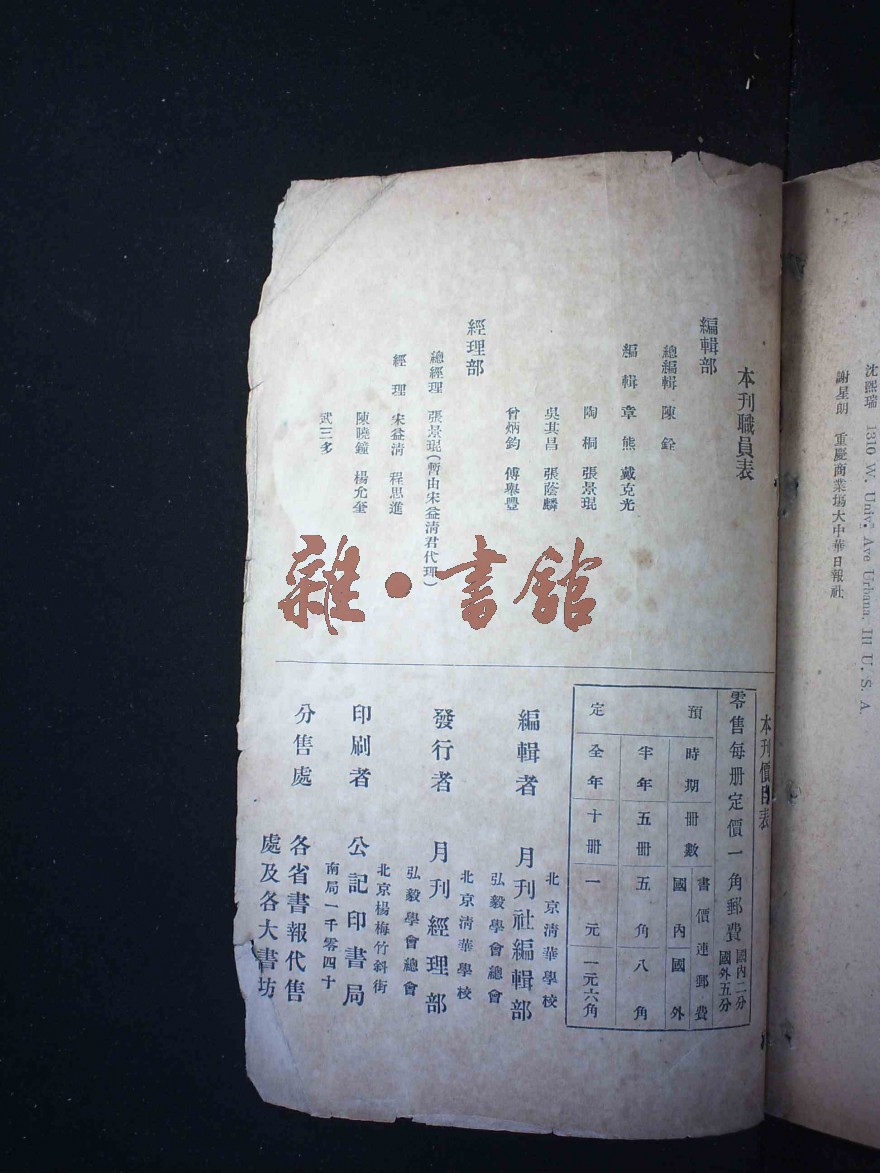 沈熙瑞 1310 W. Univ. Ave Urbana, Ill U. S. A.
謝星朗 重慶商業場大中華日報社
本刊職員表
編輯部
總編輯 陳 銓
編 輯 章 熊 戴克光
陶 桐 張景琨
吳其昌 張蔭麟
曾炳鈞 傅舉豐
經理部
總經理 張景琨(暫由宋益清君代理)
經 理 宋益清 程思進
陳曉鐘 楊允奎
武三多
雜·書館
本刊價目表
零售每册定價一角郵費 國內二分 國外五分
預定
時期 冊數 書價連郵費 國內 國外
半年 五冊 五角 八角
全年 十冊 一元 一元六角
北京清華學校
編輯者 月刊社編輯部
弘毅學會總會
北京清華學校
發行者 月刊經理部
弘毅學會總會
北京楊梅竹斜街
印刷者 公記印書局
南局一千零四十
分售處 各省書報代售
處及各大書坊